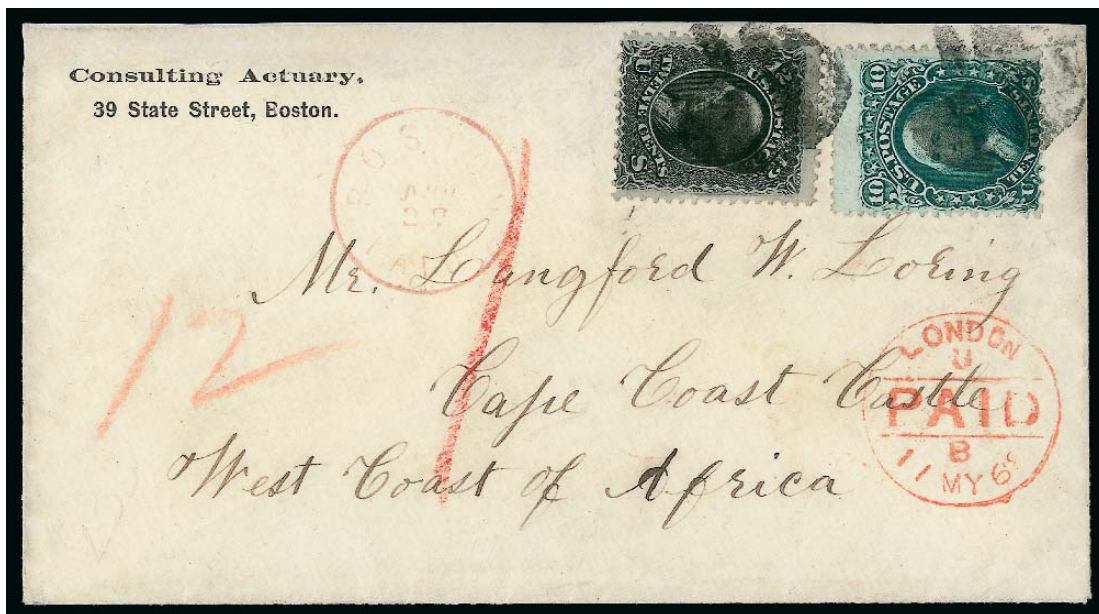 Consulting Actuary,
39 State Street, Boston.
U.S. POSTAGE
12
U.S. POSTAGE
10
10
TEN CENTS
BOS
Mr. Langford W. Loring
Cape Coast Castle
West Coast of Africa
12
LONDON
U
PAID
B
11 MY 6